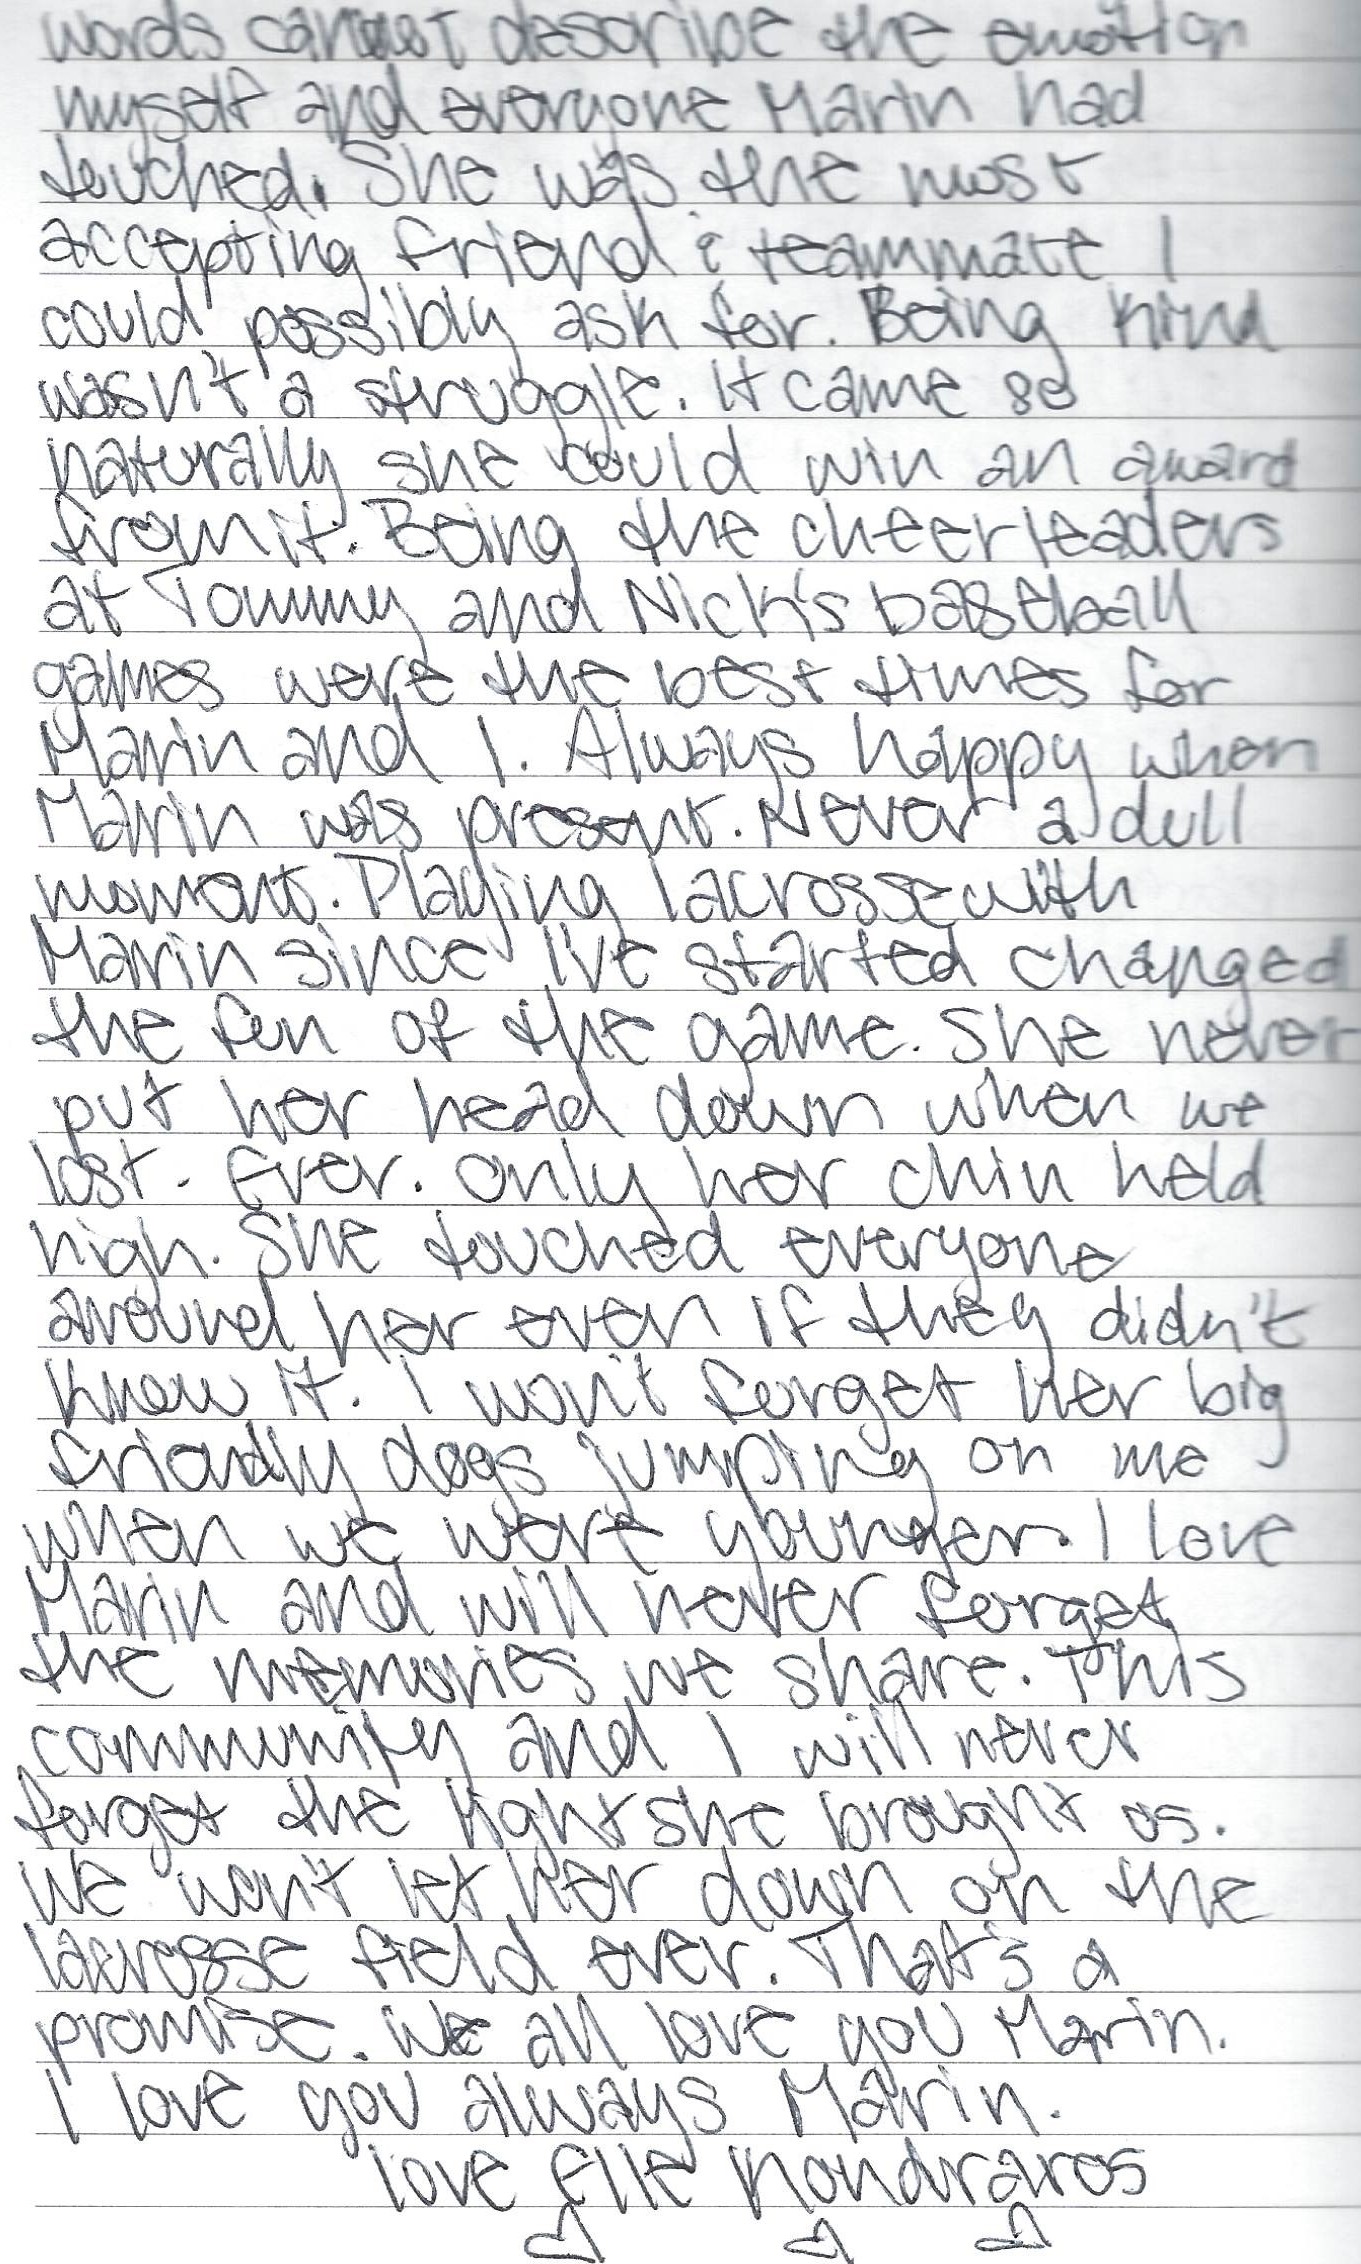 words cannot describe the emotion
myself and everyone Marin had
touched. She was the most
accepting friend & teammate I
could possibly ask for. Being kind
wasn't a struggle. It came so
naturally she could win an award
from it. Being the cheerleaders
at Tommy and Nick's baseball
games were the best times for
Marin and I. Always happy when
Marin was present. Never a dull
moment. Playing lacrosse with
Marin since I've started changed
the fun of the game. She never
put her head down when we
lost. Ever. Only her chin held
high. She touched everyone
around her even if they didn't
know it. I won't forget her big
friendly dogs jumping on me
when we were younger. I love
Marin and will never forget
the memories we share. This
community and I will never
forget the light she brought us.
We won't let her down on the
lacrosse field ever. That's a
promise. We all love you Marin.
I love you always Marin.
love Elle Kondraros